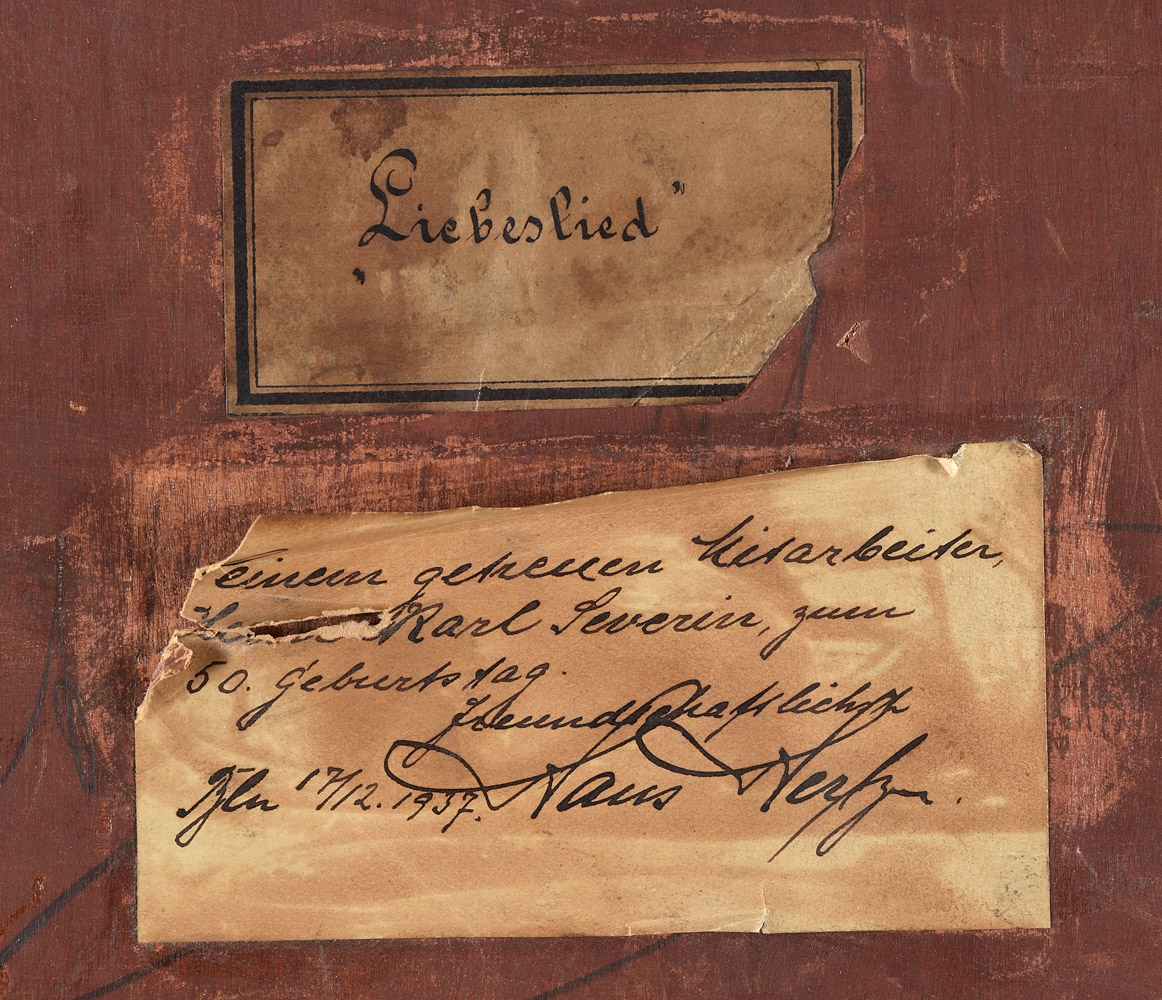 „Liebeslied”
einem getreuen Mitarbeiter,
Herrn Karl Severin, zum
50. Geburtstag.
Freundschaftlichst
Bln 17/12. 1937. Hans